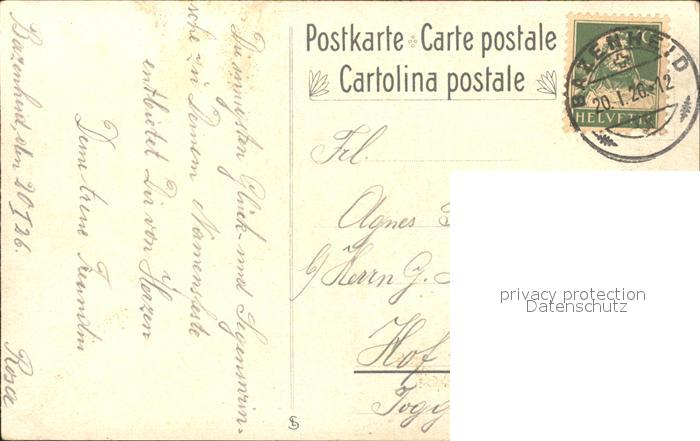 Postkarte Carte postale
Cartolina postale
BAZENHEID
20.I.26.-12
HELVETIA
Die innigsten Glück- und Segenswün-
sche zu Deinem Namensfeste
entbietet Dir von Herzen
Deine treue Freundin
Rosa
Bazenheid, den 20/I 26.
Frl.
Agnes
Herrn G.
Hof
Togg
privacy protection
Datenschutz